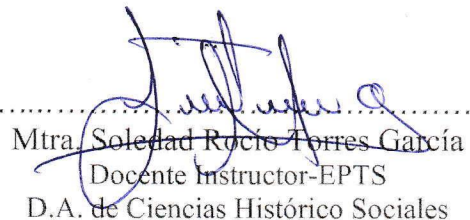 Mtra. Soledad Rocío Torres García
Docente Instructor-EPTS
D.A. de Ciencias Histórico Sociales